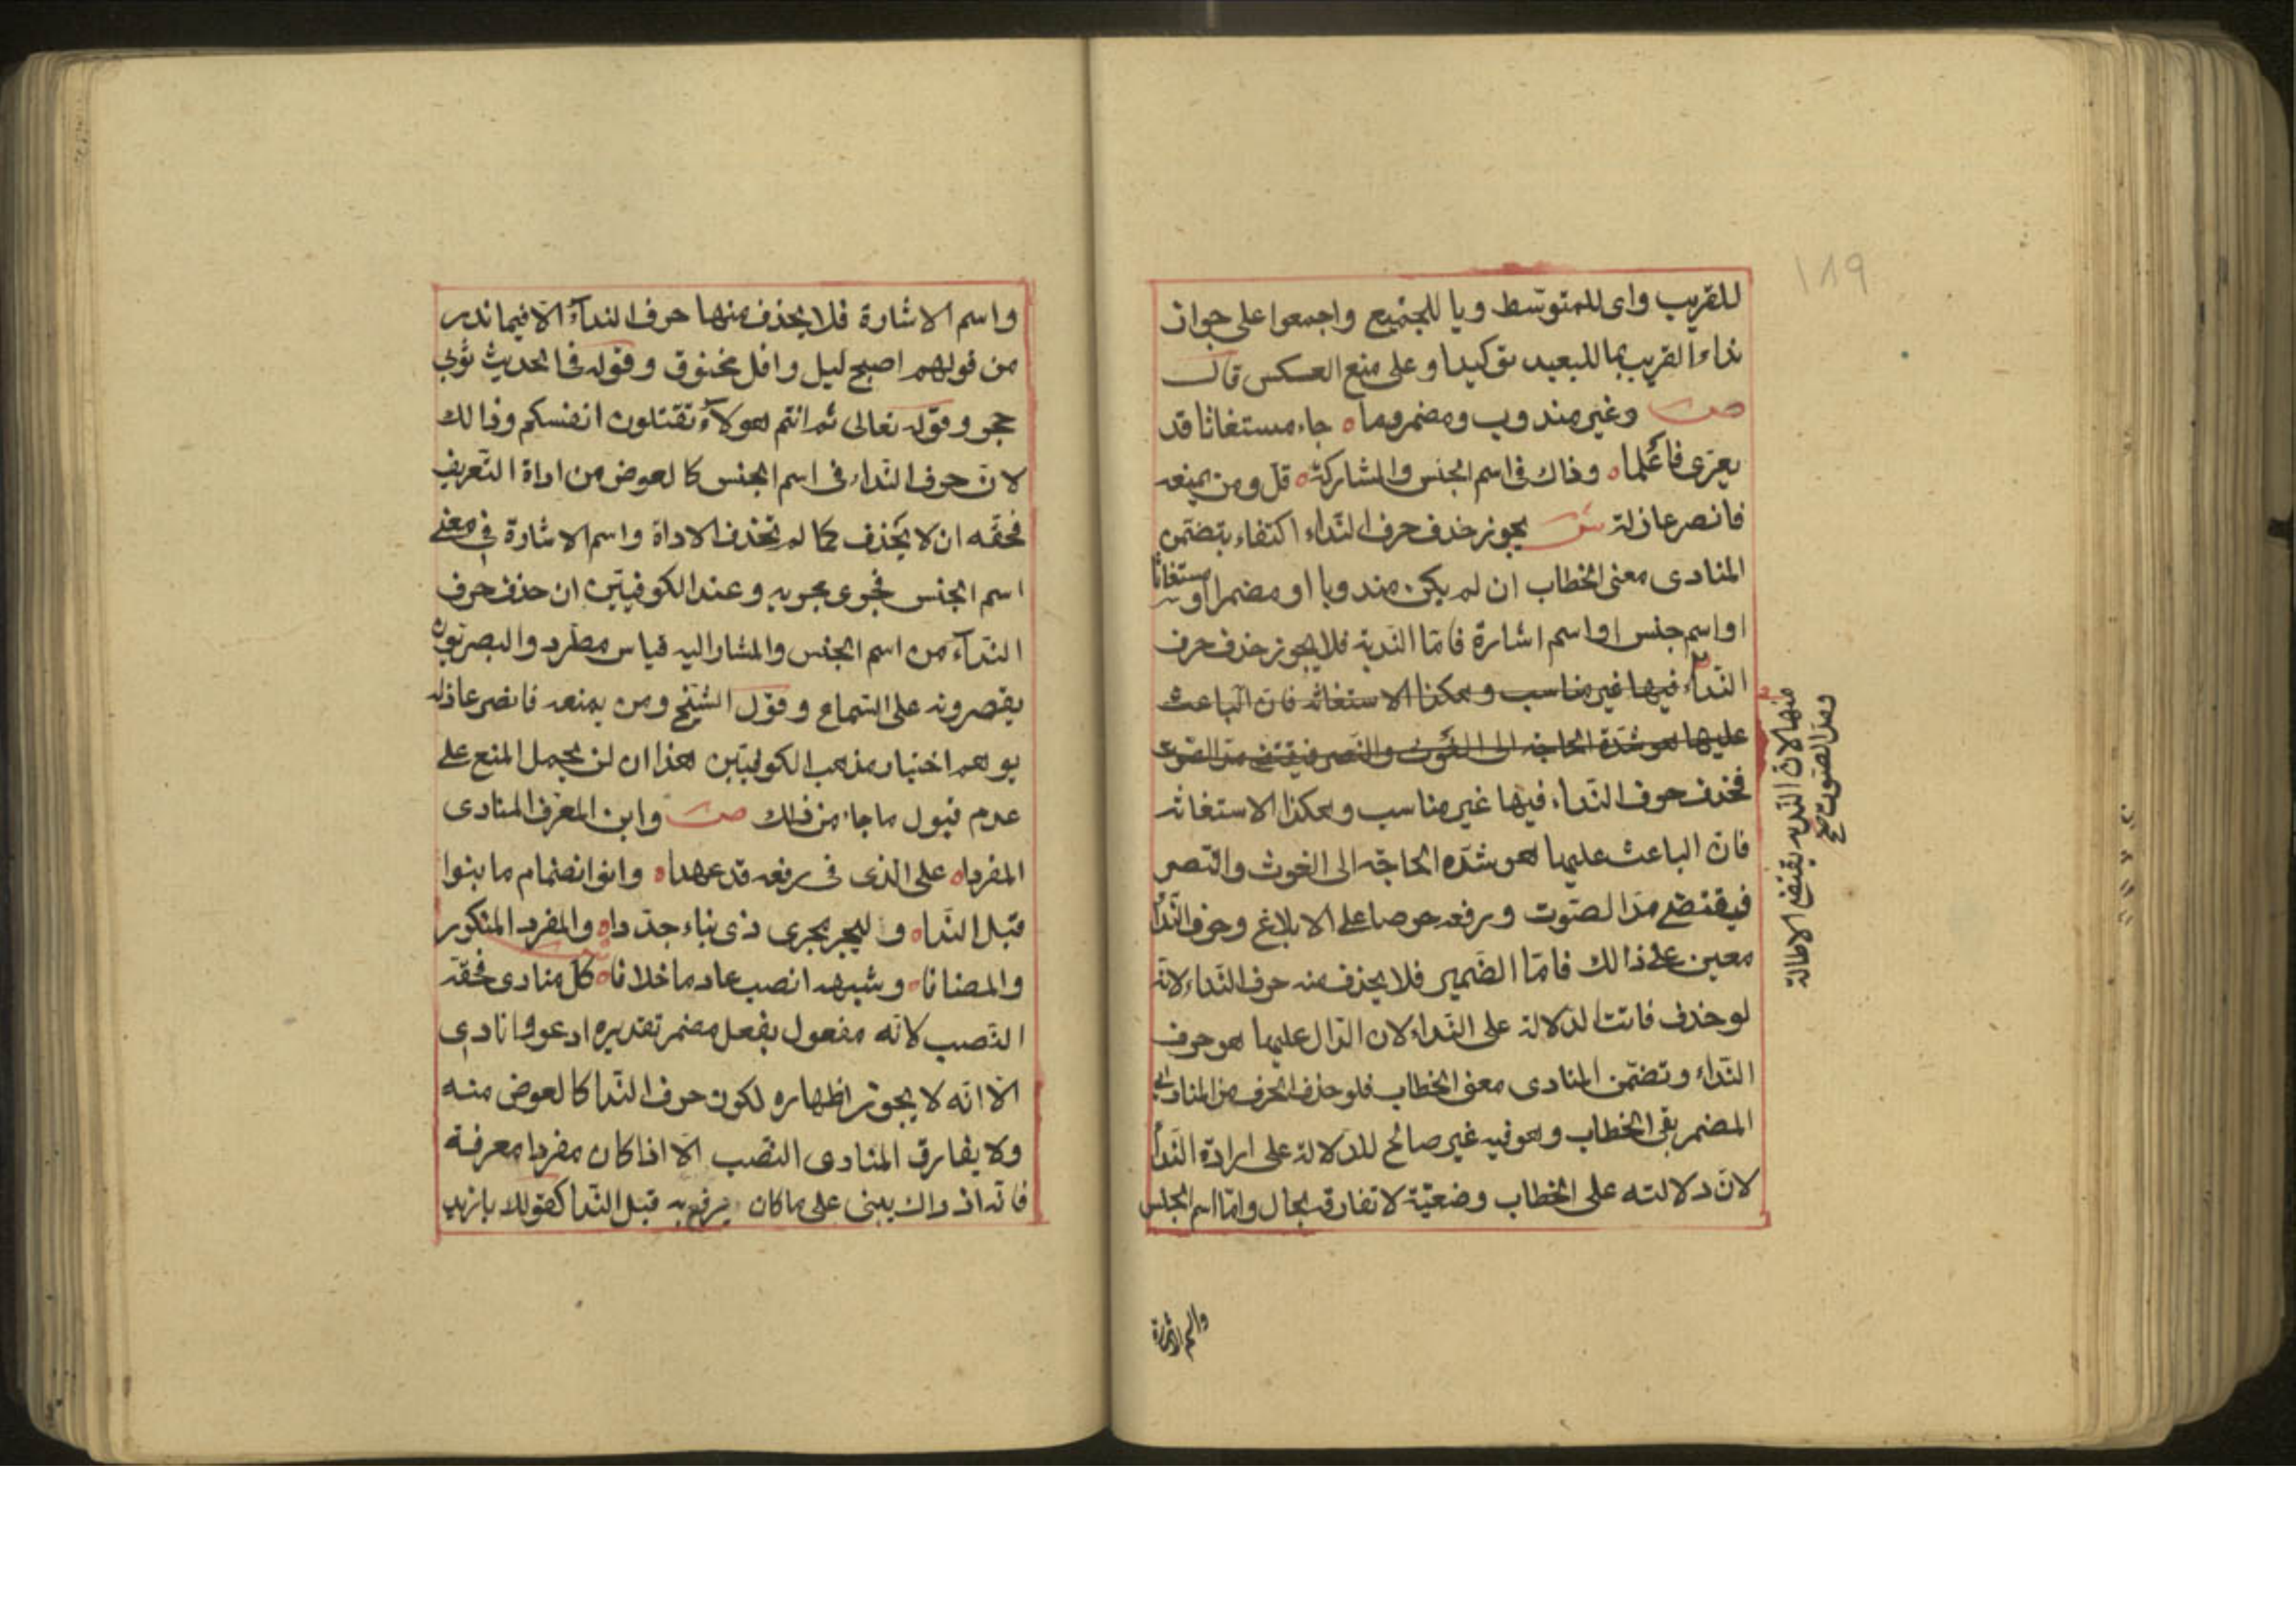 ١٨٩
للقريب واى للمتوسط ويا للجميع واجمعوا على جواز
نداء القريب بما للبعيد توكيدا وعلى منع العكس قال
ص وغير مندوب ومضمر وما ه جاء مستغاثا قد
يعرى فاعلما ه وذاك فى اسم الجنس والمشار كه ه قل ومن يمنعه
فانصر عاذله ش يجوز حذف حرف النداء اكتفاء بتضمن
المنادى معنى الخطاب ان لم يكن مندوبا او مضمرا او مستغاثا
او اسم جنس او اسم اشارة فامّا الندبة فلا يجوز حذف حرف
النداء فيها غير مناسب وهكذا الاستغاثه فان الباعث
عليها هو شدّة الحاجة الى الغوث والنصر فيقتضى مدّ الصوت
منها لان الندبه يقتضى الاطالة
ومدّ الصوت صح
فحذف حرف النداء فيها غير مناسب وهكذا الاستغاثه
فان الباعث عليها هو شدّه الحاجة الى الغوث والنصر
فيقتضى مدّ الصّوت ورفعه حرصا على الابلاغ وحرف النّداء
معين على ذالك فامّا الضّمير فلا يحذف منه حرف النداء لانّه
لو حذف فاتت الدلالة على النّداء لان الدّال عليها هو حرف
النداء وتضمّن المنادى معنى الخطاب فلو حذف الحرف من المنادى
المضمر بقى الخطاب وهو فيه غير صالح للدلالة على ارادة النّداء
لانّ دلالته على الخطاب وضعيّة لا تفارقه بحال وامّا اسم الجنس
واسم الاشارة
واسم الاشارة فلا يحذف منها حرف النداء الّا فيما ندر
من قولهم اصبح ليل وافل مخنوق وقوله فى الحديث ثوبى
حجر وقوله تعالى ثم انتم هولاء تقتلون انفسكم وذالك
لانّ حرف النّداء فى اسم الجنس كالعوض من اداة التّعريف
فحقّه ان لا يحذف كما لم تحذف الاداة واسم الاشارة فى معنى
اسم الجنس فجرى مجريه وعند الكوفيّين ان حذف حرف
النداء من اسم الجنس والمشار اليه قياس مطّرد والبصريّون
يقصرونه على السّماع وقول الشيخ ومن يمنعه فانصر عاذله
يوهم اختيار مذهب الكوفيّين هذا ان لن يحمل المنع على
عدم قبول ما جاء من ذلك ص وابن المعرّف المنادى
المفردا ه على الذى فى رفعه قد عهدا ه وانو انضمام ما بنوا
قبل النّدا ه وليجر مجرى ذى بناء جدّدا ه والمفرد المنكور
والمضافا ه وشبهه انصب عادما خلافا ه ش كل منادى فحقّه
النّصب لانّه مفعول بفعل مضمر تقديره ادعو وانادى
الّا انّه لا يجوز اظهاره لكون حرف النّدا كالعوض منه
ولا يفارق المنادى النّصب الّا اذا كان مفردا معرفة
فانّه اذ ذاك يبنى على ما كان يرفع به قبل النّدا كقولك يا زيد